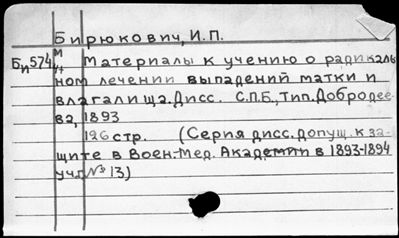 Бирюкович, И.П.
Бп574 Материалы к учению о радикаль
ном лечении выпадений матки и
влагалища. Дисс. С.П.Б., Тип. Добродее-
ва, 1893
126 стр. (Серия дисс. допущ. к за-
щите в Воен.-Мед. Академии в 1893-1894
уч.г. № 13)